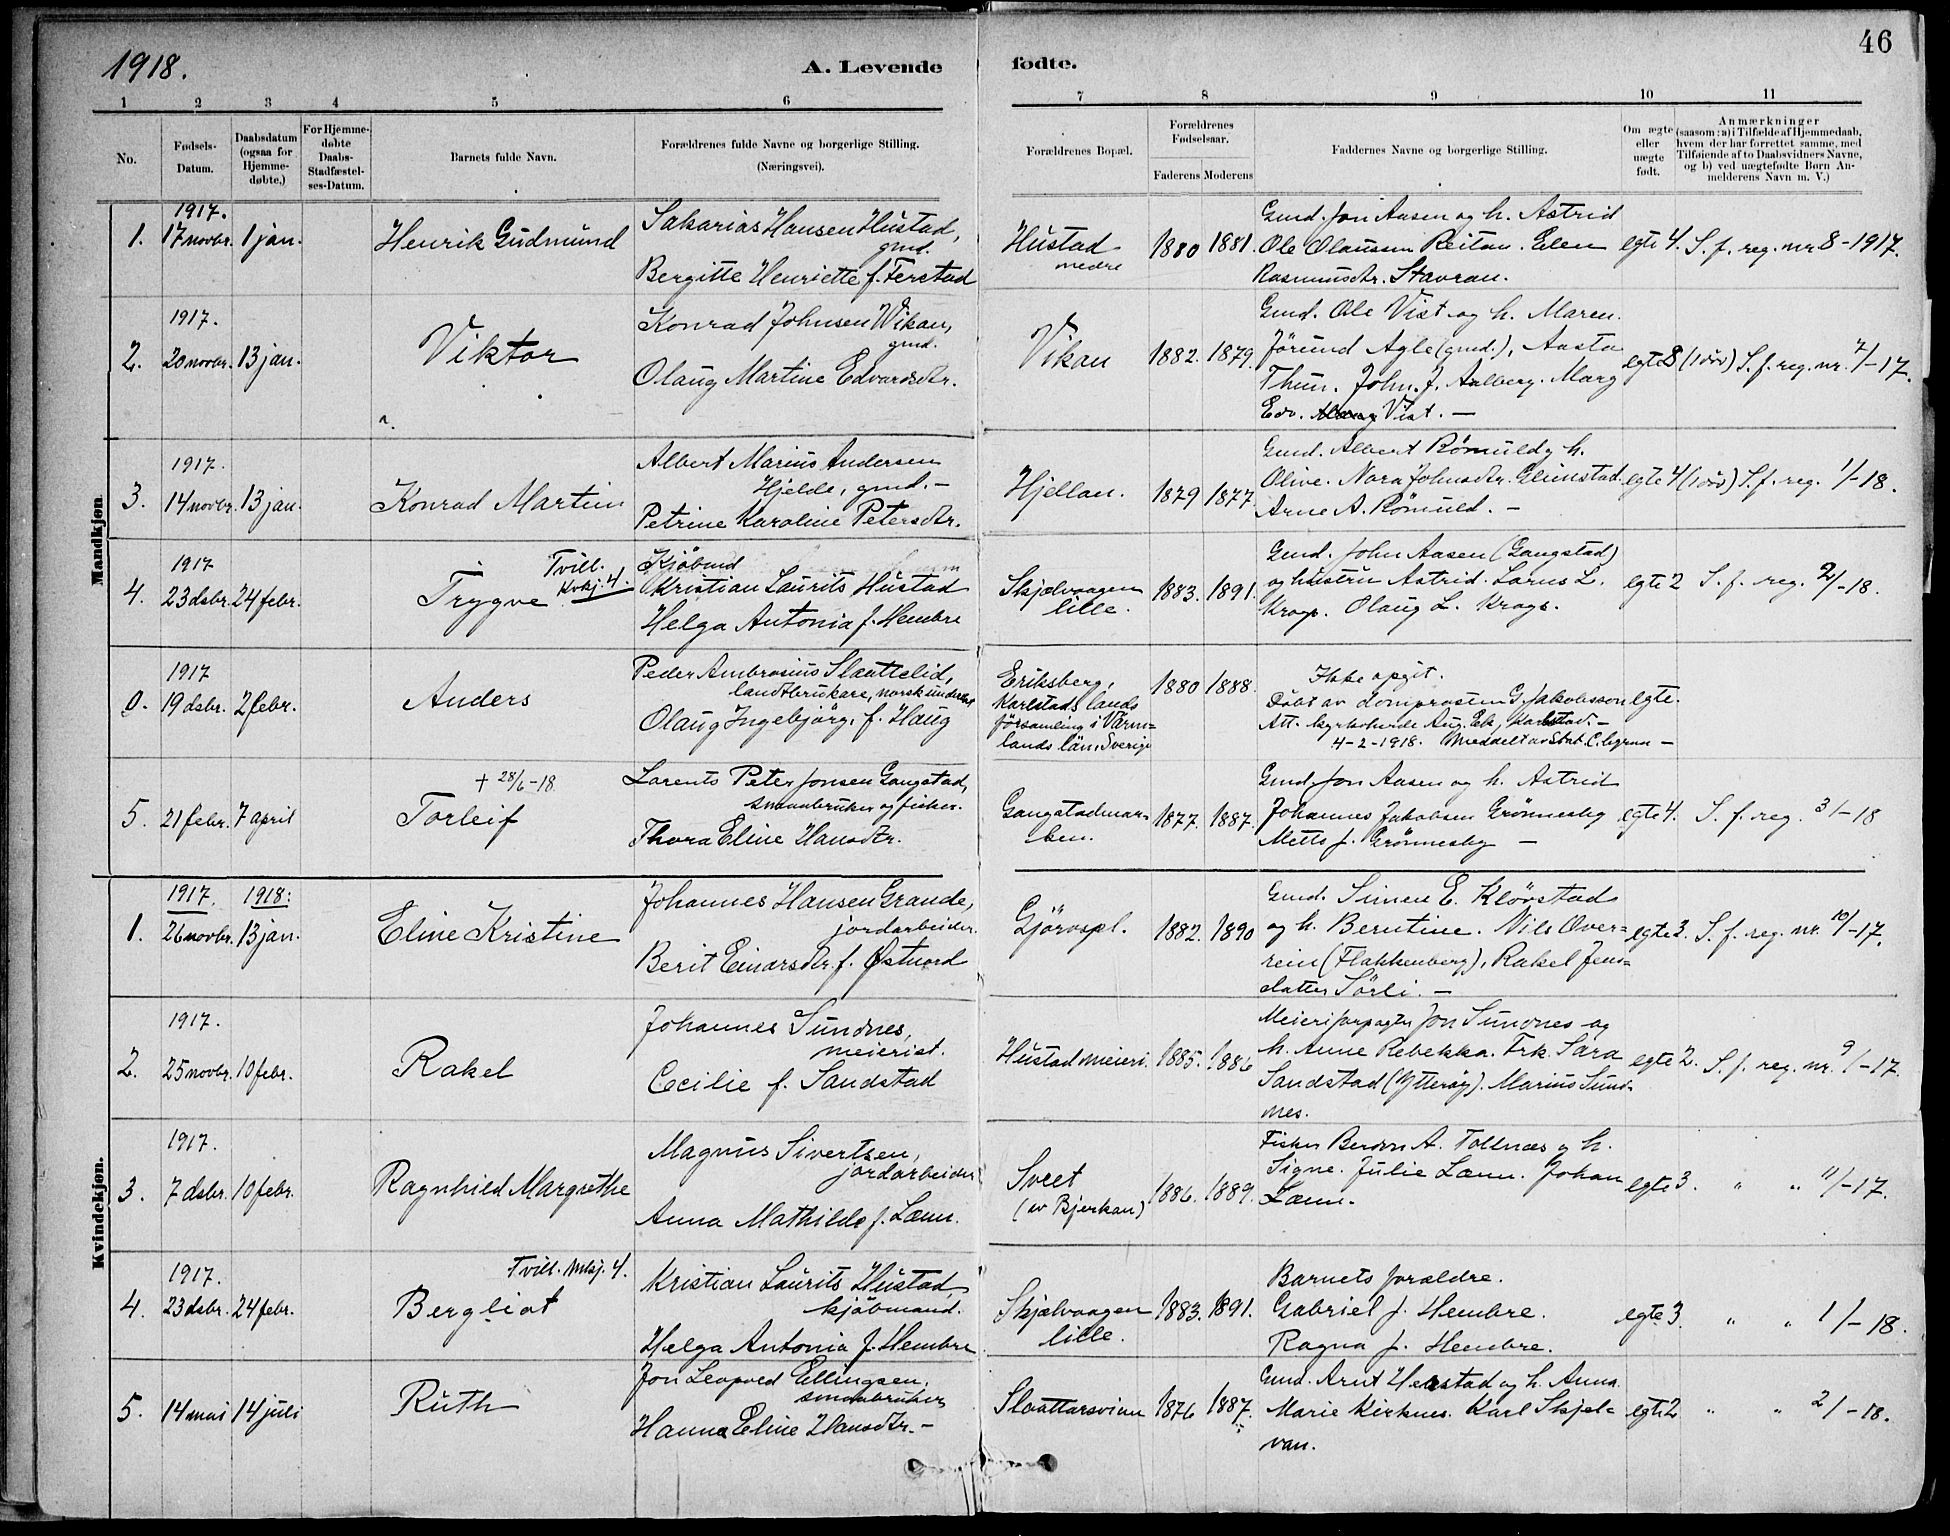 46
1918.
A. Levende fødte.
1 2 3 4 5 6 7 8 9 10 11
No.
Fødsels-
Datum.
Daabsdatum
(ogsaa for
Hjemme-
døbte,)
For Hjemme-
døbte
Daabs-
Stadfæstel-
ses-Datum.
Barnets fulde Navn.
Forældrenes fulde Navne og borgerlige Stilling.
(Næringsvei).
Forældrenes Bopæl.
Forældrenes
Fødselsaar.
Faderens Moderens
Faddernes Navne og borgerlige Stilling.
Om ægte
eller
uægte
født.
Anmærkninger
(saasom: a) i Tilfælde af Hjemmedaab,
hvem der har forrettet samme, med
Tilføiende af to Daabsvidners Navne,
og b) ved uægtefødte Børn An-
melderens Navn m. V.)
Mandkjøn.
1917.
1. 17 novbr. 1 jan. Henrik Gudmund
Sakarias Hansen Hustad,
gmd.
Bergitte Henriette f. Ferstad
Hustad
nedre
1880 1881.
Gmd. Jon Aasen og h. Astrid
Ole Olaussen Reitan. Elen
Rasmusdtr. Stavran.
egte 4. S. f. reg. nr 8-1917.
1917.
2. 20 novbr. 13 jan. Viktor
Konrad Johnsen Vikan,
gmd.
Olaug Martine Edvardsdtr.
Vikan
1882. 1879.
Gmd. Ole Vist og h. Maren.
Jörund Agle (gmd.), Aasta
Thun. John J. Aalberg. Marg
Edv. Vist. —
egte 8 (1 döv) S. f. reg. nr. 7/-17.
1917.
3. 14 novbr. 13 jan. Konrad Martin
Albert Marius Andersen
Hjelde, gmd. -
Petrine Karoline Petersdtr.
Hjellan.
1879 1877.
Gmd. Albert Römuld og h.
Olive. Nora Johnsdtr. Glimstad
Arne A. Römuld. -
egte 4 (1 döv) S. f. reg. 1/-18.
1917
4. 23 dsbr. 24 febr. Trygve
Tvill.
Kvkj. 4.
Kjöbmd
Kristian Laurits Hustad
Helga Antonia f. Hembre
Skjelvaagen
lille.
1883. 1891.
Gmd. John Aasen (Gangstad)
og hustru Astrid. Lorns L.
Krogs. Olaug L. Krogs.
egte 2 S. f. reg. 2/-18.
1917
0. 19 dsbr. 2 febr. Anders
Peder Ambrosius Slaattelid,
landtbrukare, norsk undersaat
Olaug Ingebjörg. f. Haug
Eriksberg,
Karlstads lands
församling i Värm-
lands län, Sverige
1880 1888.
Ikke opgit.
Döbt av domprosten G. Jakobsson
Att. kyrkoherde Aug. Ek, Karlstad. -
4-2-1918. Meddelt av Stat. C.byraa -
egte.
+ 28/6-18
5. 21 febr. 7 april Torleif
Lorents Peter Jonsen Gangstad,
smaabruker og fisker.
Thora Eline Hansdtr.
Gangstadmar-
ken.
1877. 1887.
Gmd. Jon Aasen og h. Astrid
Johannes Jakobsen Grönnesby
Mette J. Grönnesby —
egte 4. S. f. reg. 3/-18
Kvindekjøn.
1917. 1918:
1. 26 novbr. 13 jan. Eline Kristine
Johannes Hansen Grande,
jordarbeider.
Berit Einarsdtr. f. Østnord
Gjörvspl.
1882. 1890
Gmd. Simen E. Klövstad
og h. Berntine. Nils Over-
rein (Flakkenberg), Rakel Jens-
datter Sörli. —
egte 3. S. f. reg. nr. 10/-17.
1917.
2. 25 novbr. 10 febr. Rakel
Johannes Sundnes,
meierist.
Cecilie f. Sandstad
Hustad meieri.
1885. 1886
Meieriforpagter Jon Sundnes og
h. Anne Rebekka. Frk. Sara
Sandstad (Ytteröy). Marius Sund-
nes.
egte 2. S. f. reg. nr. 9/-17.
1917.
3. 7 dsbr. 10 febr. Ragnhild Margrethe
Magnus Sivertsen,
jordarbeider
Anna Mathilde f. Lænn.
Sveet
(av Bjerkan)
1886. 1889.
Fisker Berdon A. Tollnæs og h.
Signe. Julie Lænn. Johan
Lænn.
egte 3. " " 11/-17.
1917.
4. 23 dsbr. 24 febr. Bergliot
Tvill. Mkj. 4.
Kristian Laurits Hustad
kjöbmand.
Helga Antonia f. Hembre
Skjelvaagen
lille.
1883. 1891.
Barnets forældre.
Gabriel J. Hembre.
Ragna J. Hembre.
egte 3. " " 1/-18.
5. 14 mai 14 juli Ruth
Jon Leopold Ellingsen,
smaabruker
Hanna Eline Hansdtr. -
Slaattarsvian
1876 1887.
Gmd. Arnt Herstad og h. Anna.
Marie Kirknes. Karl Skjel-
van.
egte 2 " " 2/-18.